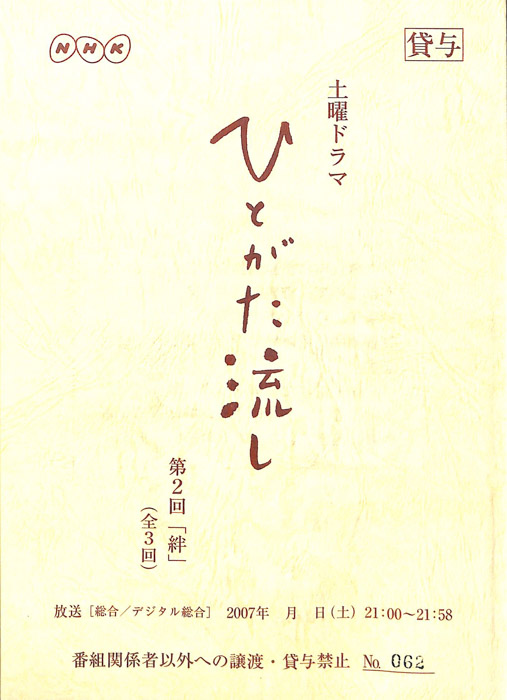 NHK
貸与
土曜ドラマ
ひとがた流し
第2回「絆」
(全3回)
放送［総合／デジタル総合］ 2007年　月　日(土) 21:00〜21:58
番組関係者以外への譲渡・貸与禁止 No. 062